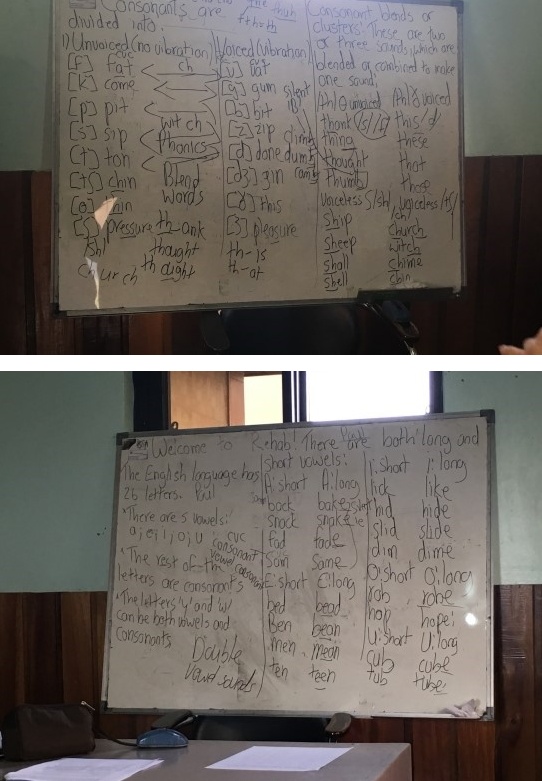 Consonants are
divided into.
1) Unvoiced (no vibration)
cvc
[f] fat
[k] came
[p] pit
[s] sip
[t] ton
[tʃ] chin
[θ] thin
[ʃ] pressure
/sh/
church
ch
witch
Phonics
Blend
words
th-ank
thought
thought
the truth
f+h=th
Voiced (vibration)
cvc
[v] vat
[g] gum
[b] bit
[z] zip
[d] done
[dʒ] gin
[ð] this
[ʒ] pleasure
th-is
th-at
silent
dumb
Consonant blends or
clusters: These are two
or three sounds, which are
blended or combined to make
one sound,
/th/ θ unvoiced
thank
thing
thought
thumb
/th/ ð voiced
this
these
that
those
voiceless ʃ/sh/, voiceless /tʃ/
/ch/
ship
sheep
shall
shell
church
witch
chime
chin
Welcome to Rehab! There are both long and
short vowels:
The English language has
26 letters. Paul
*There are 5 vowels:
a; e; i; o; u
cvc
consonant
vowel consonant
*The rest of the
letters are consonants
*The letters 'y' and 'w'
can be both vowels and
consonants
Double
vowel sounds
A: short A: long
back bake
snack snake
fad fade
Sam Same
E: short E: long
bed bead
Ben bean
men mean
ten teen
i: short i: long
lick like
hid hide
slid slide
dim dime
O: short O: long
rob robe
hop hope
U: short U: long
cub cube
tub tube